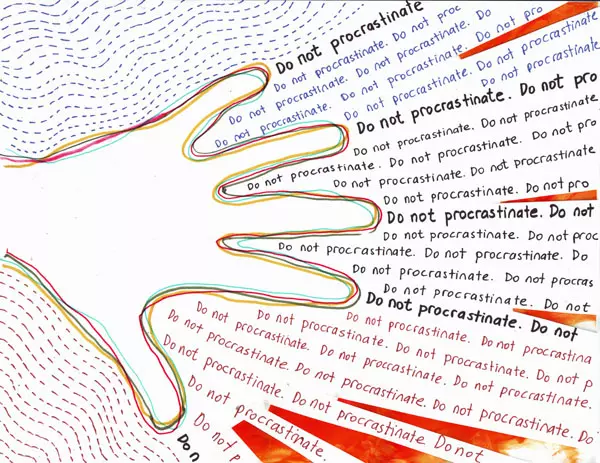 Do not procrastinate
Do not procrastinate. Do not proc
Do not procrastinate. Do not procrastinate. Do
Do not procrastinate. Do not procrastinate. Do not pro
Do not procrastinate. Do not procrastinate
Do not procrastinate
Do not procrastinate. Do not pro
Do not procrastinate. Do not procrastinate.
Do not procrastinate. Do not procrastinate. Do not pro
Do not procrastinate. Do not procrastinate.
Do not procrastinate. Do not pro
Do not procrastinate. Do not
Do not procrastinate. Do not proc
Do not procrastinate. Do not procrastinate. Do
Do not procrastinate. Do not procras
Do not procrastinate. Do not
Do not procrastinate. Do not
Do not procrastinate. Do not procrastinate. Do not procrastina
Do not procrastinate. Do not procrastinate. Do not p
Do not procrastinate. Do not procrastinate. Do not procrastinate.
Do not procrastinate. Do not procrastinate. Do
Do not procrastinate. Do not procrastinate Do not
Do not procrastinate
Do not p
Do n